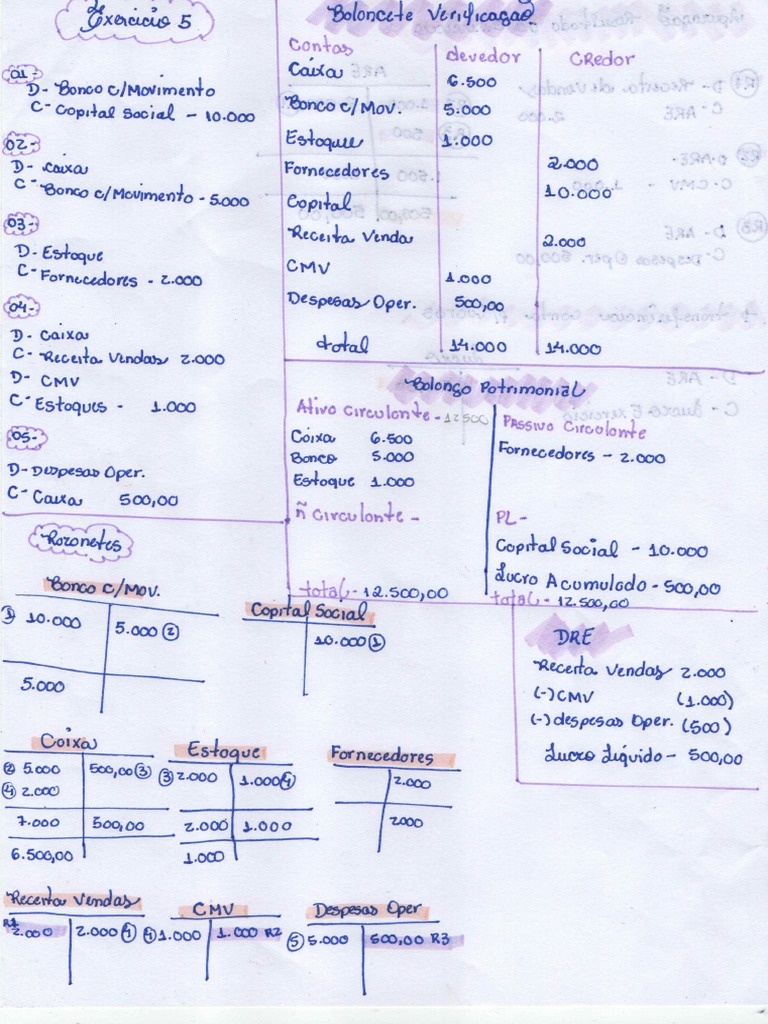 Exercicio 5
01-
D- Banco c/Movimento
C- Capital Social - 10.000
02-
D- Caixa
C- Banco c/Movimento - 5.000
03-
D- Estoque
C- Fornecedores - 2.000
04-
D- Caixa
C- Receita Vendas 2.000
D- CMV
C- Estoques - 1.000
05-
D- Despesas Oper.
C- Caixa 500,00
Balancete Verificação
Contas devedor Credor
Caixa 6.500
Banco c/Mov. 5.000
Estoque 1.000
Fornecedores 2.000
Capital 10.000
Receita Venda 2.000
CMV 1.000
Despesas Oper. 500,00
total 14.000 14.000
Balanço Patrimonial
Ativo Circulante - 12.500
Caixa 6.500
Banco 5.000
Estoque 1.000
ñ Circulante -
total - 12.500,00
Passivo Circulante
Fornecedores - 2.000
PL -
Capital Social - 10.000
Lucro Acumulado - 500,00
total - 12.500,00
DRE
Receita Vendas 2.000
(-) CMV (1.000)
(-) despesas Oper. (500)
Lucro Líquido - 500,00
Razonetes
Banco c/Mov.
1 10.000 5.000 2
5.000
Capital Social
10.000 1
Caixa
2 5.000 500,00 3
4 2.000
7.000 500,00
6.500,00
Estoque
3 2.000 1.000 4
2.000 1.000
1.000
Fornecedores
2.000
2000
Receita Vendas
R1 2.000 2.000 4
CMV
4 1.000 1.000 R2
Despesas Oper
5 5.000 500,00 R3